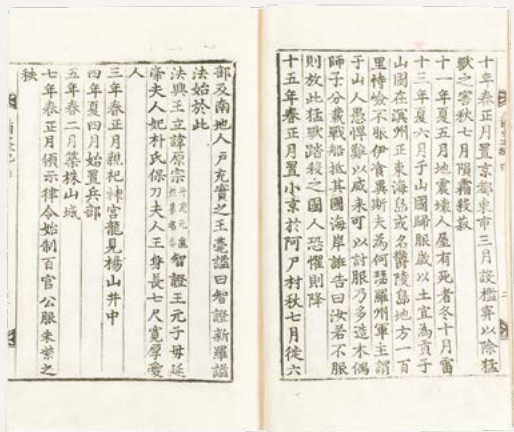 十年春正月置京都東市三月設檻穽以除猛
獸之害秋七月隕霜殺菽
十一年夏五月地震壞人屋有死者冬十月雷
十三年夏六月于山國歸服歲以土宜為貢于
山國在溟州正東海島或名欝陵島地方一百
里恃嶮不服伊飡異斯夫為何瑟羅州軍主謂
于山人愚悍難以威来可以計服乃多造木偶
師子分載戰船抵其國海岸誑告曰汝若不服
則放此猛獸踏殺之國人恐懼則降
十五年春正月置小京於阿尸村秋七月徙六
部及南地人戶充實之王薨謚曰智證新羅謚
法始於此
法興王立諱原宗智證王元子母延
帝夫人妃朴氏保刀夫人王身長七尺寬厚愛
人
三年春正月親祀神宮龍見楊山井中
四年夏四月始置兵部
五年春二月築株山城
七年春正月頒示律令始制百官公服朱紫之
秩